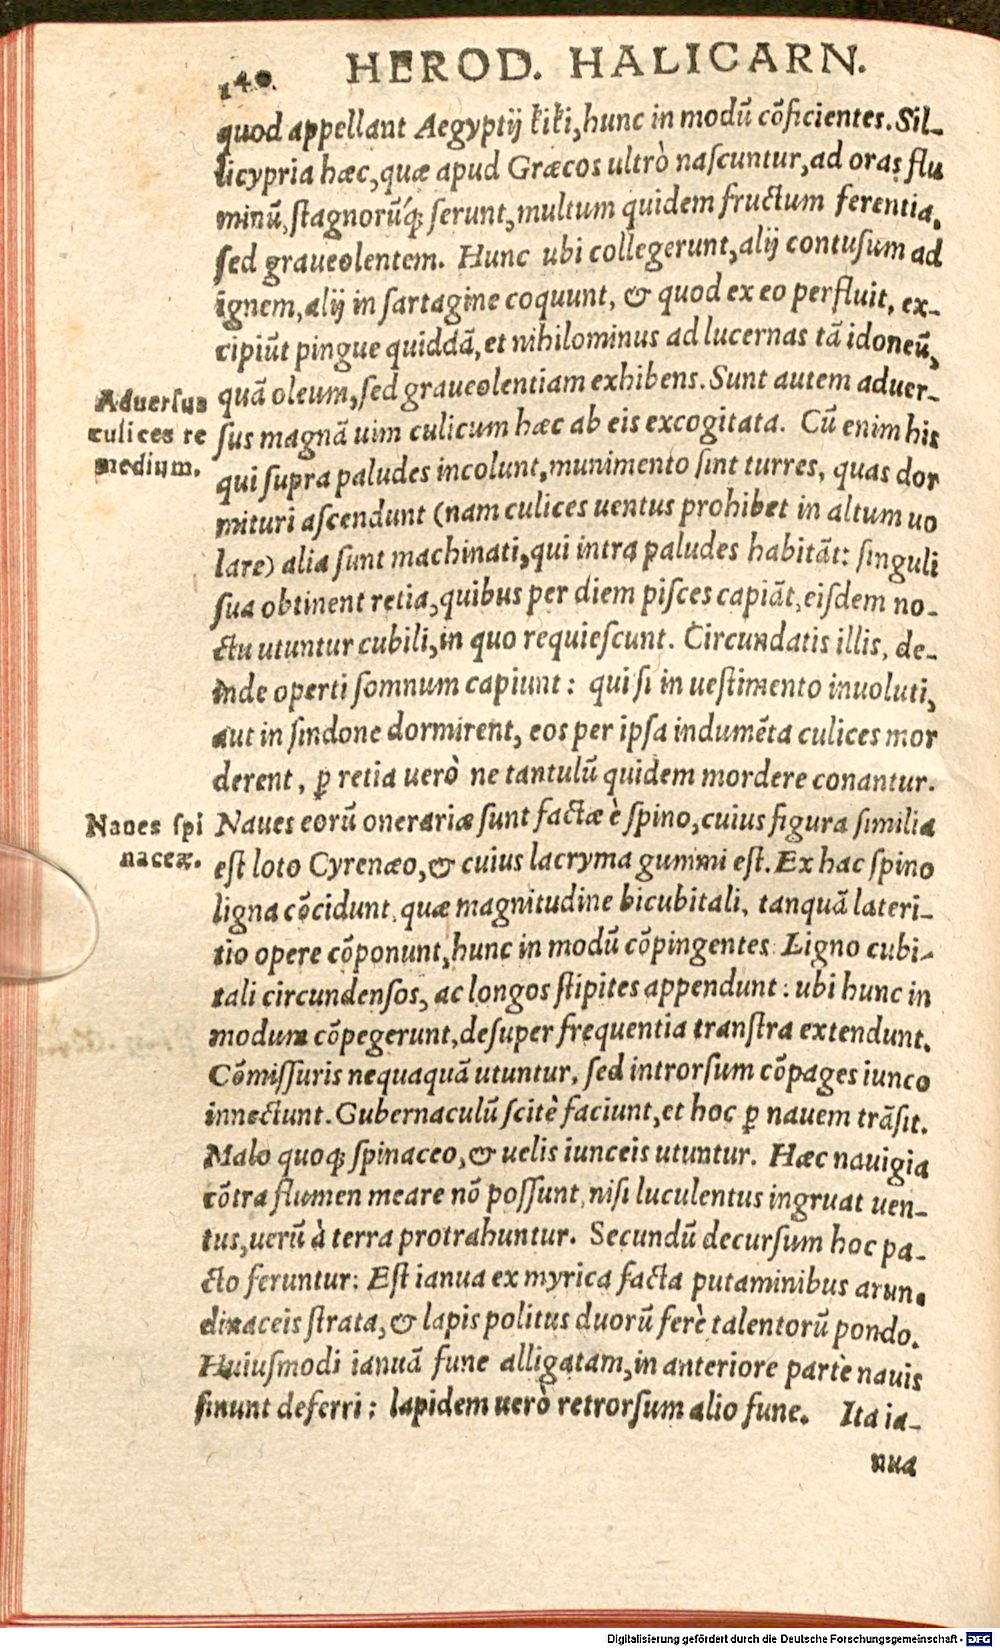 140.
HEROD. HALICARN.
quod appellant Aegyptij kiki, hunc in modũ cõficientes. Sil-
licypria hæc, quæ apud Græcos ultrò naſcuntur, ad oras flu
minũ, ſtagnorũq́; ſerunt, multum quidem fructum ferentia,
ſed graueolentem. Hunc ubi collegerunt, alij contuſum ad
ignem, alij in ſartagine coquunt, & quod ex eo perfluit, ex-
cipiũt pingue quiddã, et nihilominus ad lucernas tã idoneũ,
quã oleum, ſed graueolentiam exhibens. Sunt autem aduer-
Aduerſus
culices re
medium.
ſus magnã uim culicum hæc ab eis excogitata. Cũ enim his
qui ſupra paludes incolunt, munimento ſint turres, quas dor
mituri aſcendunt (nam culices uentus prohibet in altum uo
lare) alia ſunt machinati, qui intra paludes habitãt: ſinguli
ſua obtinent retia, quibus per diem piſces capiãt, eiſdem no-
ctu utuntur cubili, in quo requieſcunt. Circundatis illis, de-
inde operti ſomnum capiunt: qui ſi in ueſtimento inuoluti,
aut in ſindone dormirent, eos per ipſa indumẽta culices mor
derent, ꝑ retia uerò ne tantulũ quidem mordere conantur.
Naues ſpi
naceæ.
Naues eorũ onerariæ ſunt factæ è ſpino, cuius figura ſimilia
eſt loto Cyrenæo, & cuius lacryma gummi eſt. Ex hac ſpino
ligna cõcidunt, quæ magnitudine bicubitali, tanquã lateri-
tio opere cõponunt, hunc in modũ cõpingentes. Ligno cubi-
tali circundenſos, ac longos ſtipites appendunt: ubi hunc in
modum cõpegerunt, deſuper frequentia tranſtra extendunt.
Cõmiſſuris nequaquã utuntur, ſed introrſum cõpages iunco
innectunt. Gubernaculũ ſcitè faciunt, et hoc ꝑ nauem trãſit.
Malo quoq; ſpinaceo, & uelis iunceis utuntur. Hæc nauigia
cõtra flumen meare nõ poſſunt, niſi luculentus ingruat uen-
tus, uerũ à terra protrahuntur. Secundũ decurſum hoc pa-
cto feruntur: Eſt ianua ex myrica facta putaminibus arun-
dinaceis ſtrata, & lapis politus duorũ ferè talentorũ pondo.
Huiuſmodi ianuã fune alligatam, in anteriore parte nauis
ſinunt deferri: lapidem uerò retrorſum alio fune. Ita ia-
nua
Digitalisierung gefördert durch die Deutsche Forschungsgemeinschaft - DFG